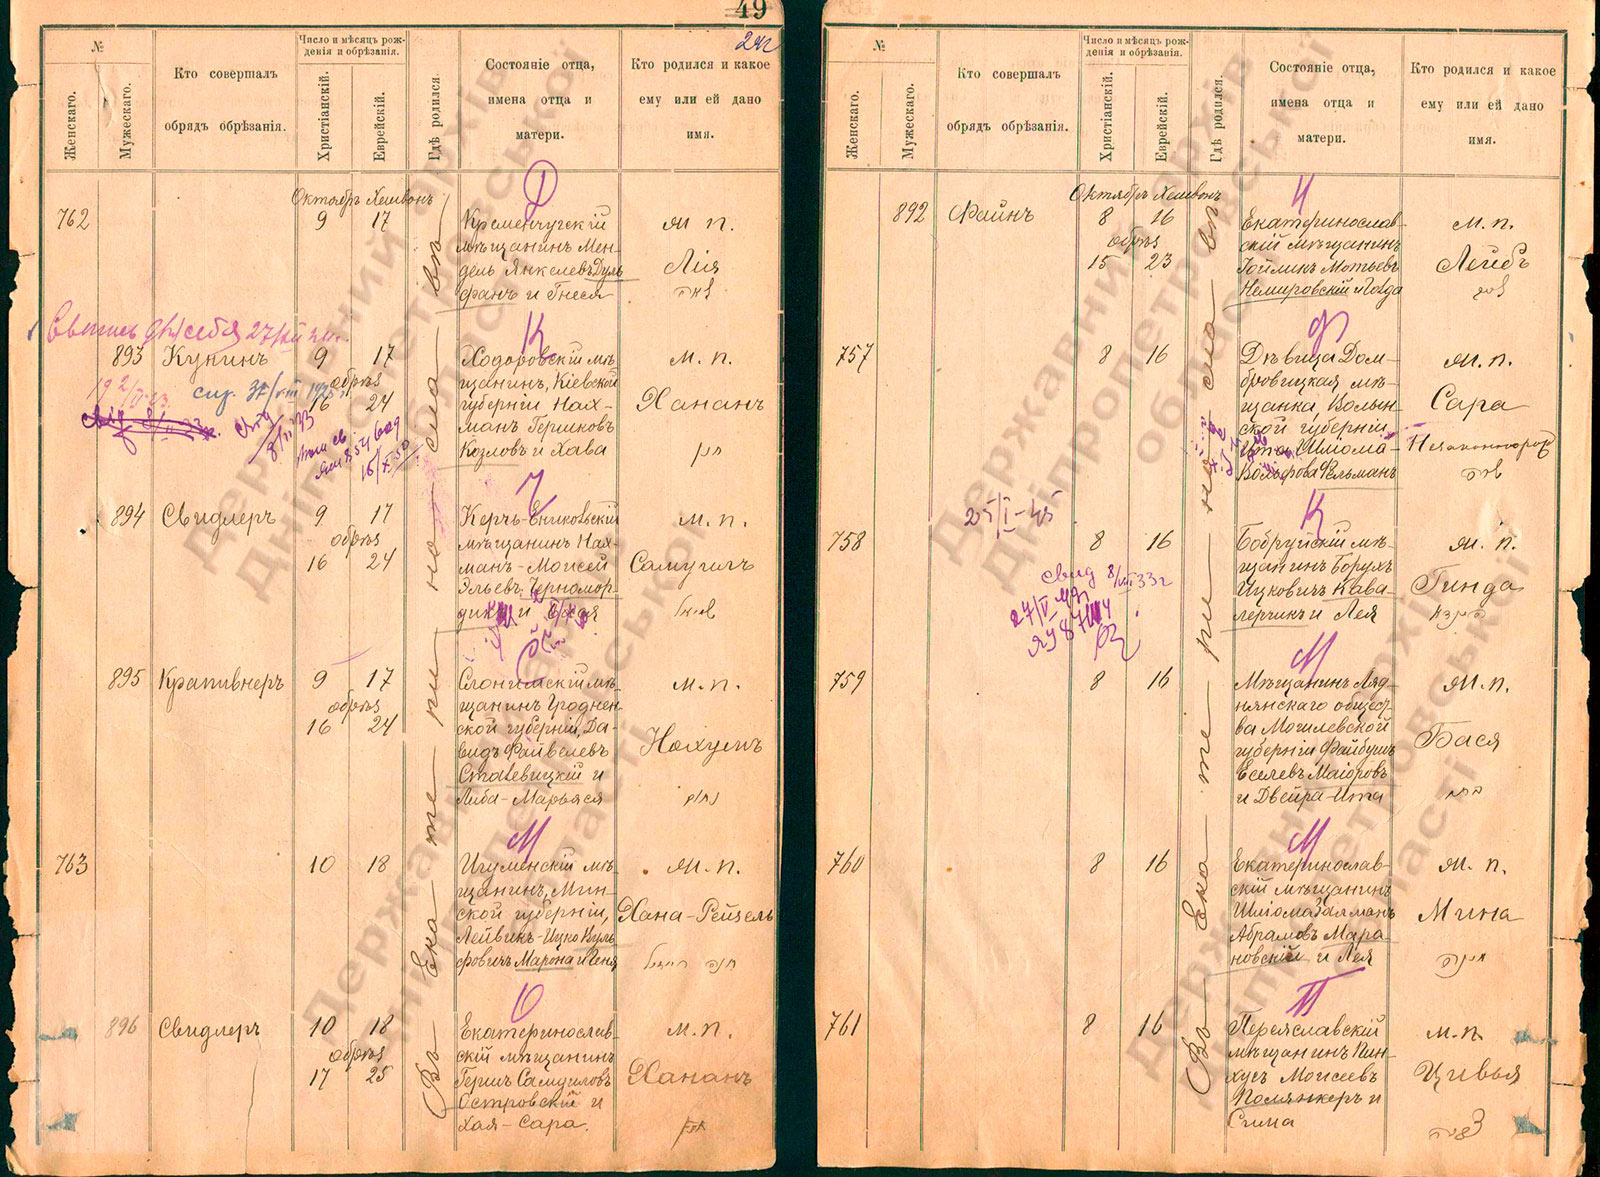 49
№
Женскаго.
Мужескаго.
Кто совершалъ
обрядъ обрѣзанія.
Число и мѣсяцъ рож-
денія и обрѣзанія.
Христіанскій.
Еврейскій.
Гдѣ родился.
Состояніе отца,
имена отца и
матери.
Кто родился и какое
ему или ей дано
имя.
Октябрь Хешвонъ
762
9 17
Кременчугскій
мѣщанинъ Мен-
дель Янкелевъ Дуль
фанъ и Гнеся
М. п.
Лія
לאה
К
893 Кунинъ 9 17
обрѣз
16 24
Ходоровскій мѣ
щанинъ, Кіевской
губерніи Нах-
манъ Гершковъ
Козловъ и Хава
м. п.
Хананъ
חנן
Ч
894 Свидлеръ 9 17
обрѣз
16 24
Керчь-Ениковскій
мѣщанинъ Нах-
манъ-Моисей
Эльевъ Черномор-
дикъ и
м. п.
Самуилъ
895 Крапивнеръ 9 17
обрѣз
16 24
Слонимскій мѣ-
щанинъ Гроднен-
ской губерніи, Да-
видъ Файвелевъ
Сталевицкій и
Либа-Марьяся
м. п.
Нохумъ
נחום
М
763
10 18
Игуменскій мѣ-
щанинъ, Мин-
ской губерніи,
Лейвикъ-Ицко Куль
фовичъ Марона и
М. п.
Хана-Рейзель
חנה רייזל
О
896 Свидлеръ 10 18
обрѣз
17 25
Екатеринослав-
скій мѣщанинъ
Гершъ Самуиловъ
Островскій и
Хая-Сара.
м. п.
Хананъ
חנן
Въ Ека те ри но сла вѣ
№
Женскаго.
Мужескаго.
Кто совершалъ
обрядъ обрѣзанія.
Число и мѣсяцъ рож-
денія и обрѣзанія.
Христіанскій.
Еврейскій.
Гдѣ родился.
Состояніе отца,
имена отца и
матери.
Кто родился и какое
ему или ей дано
имя.
Октябрь Хешвонъ
892 Файнъ 8 16
обрѣз
15 23
Екатеринослав-
скій мѣщанинъ
Іойликъ Мотьевъ
Немировскій
м. п.
Лейбъ
ליב
Ф
757
8 16
Дѣвица Дом-
бровицкая мѣ-
щанка, Волын-
ской губерніи
Ита Шліома-
Вольфова Фельманъ
м. п.
Сара
שרה
К
25/I-45
758
8 16
Бобруйскій мѣ-
щанинъ Борухъ
Ицковичъ Кава-
лерчикъ и Лея
м. п.
Гинда
М
759
8 16
Мѣщанинъ Ляд-
нянскаго общест-
ва Могилевской
губерніи Файбушъ
Еселевъ Маіоровъ
и Двейра-Ита
м. п.
Бася
М
760
8 16
Екатеринослав-
скій мѣщанинъ
Шліома Залманъ
Абрамовъ Мара-
новскій и Лея
м. п.
Мина
מינה
П
761
8 16
Переяславскій
мѣщанинъ Пин-
хусъ Моисеевъ
Полянкеръ и
Сима
м. п.
Цивья
Въ Ека те ри но сла вѣ
Державний архів
Дніпропетровської
області